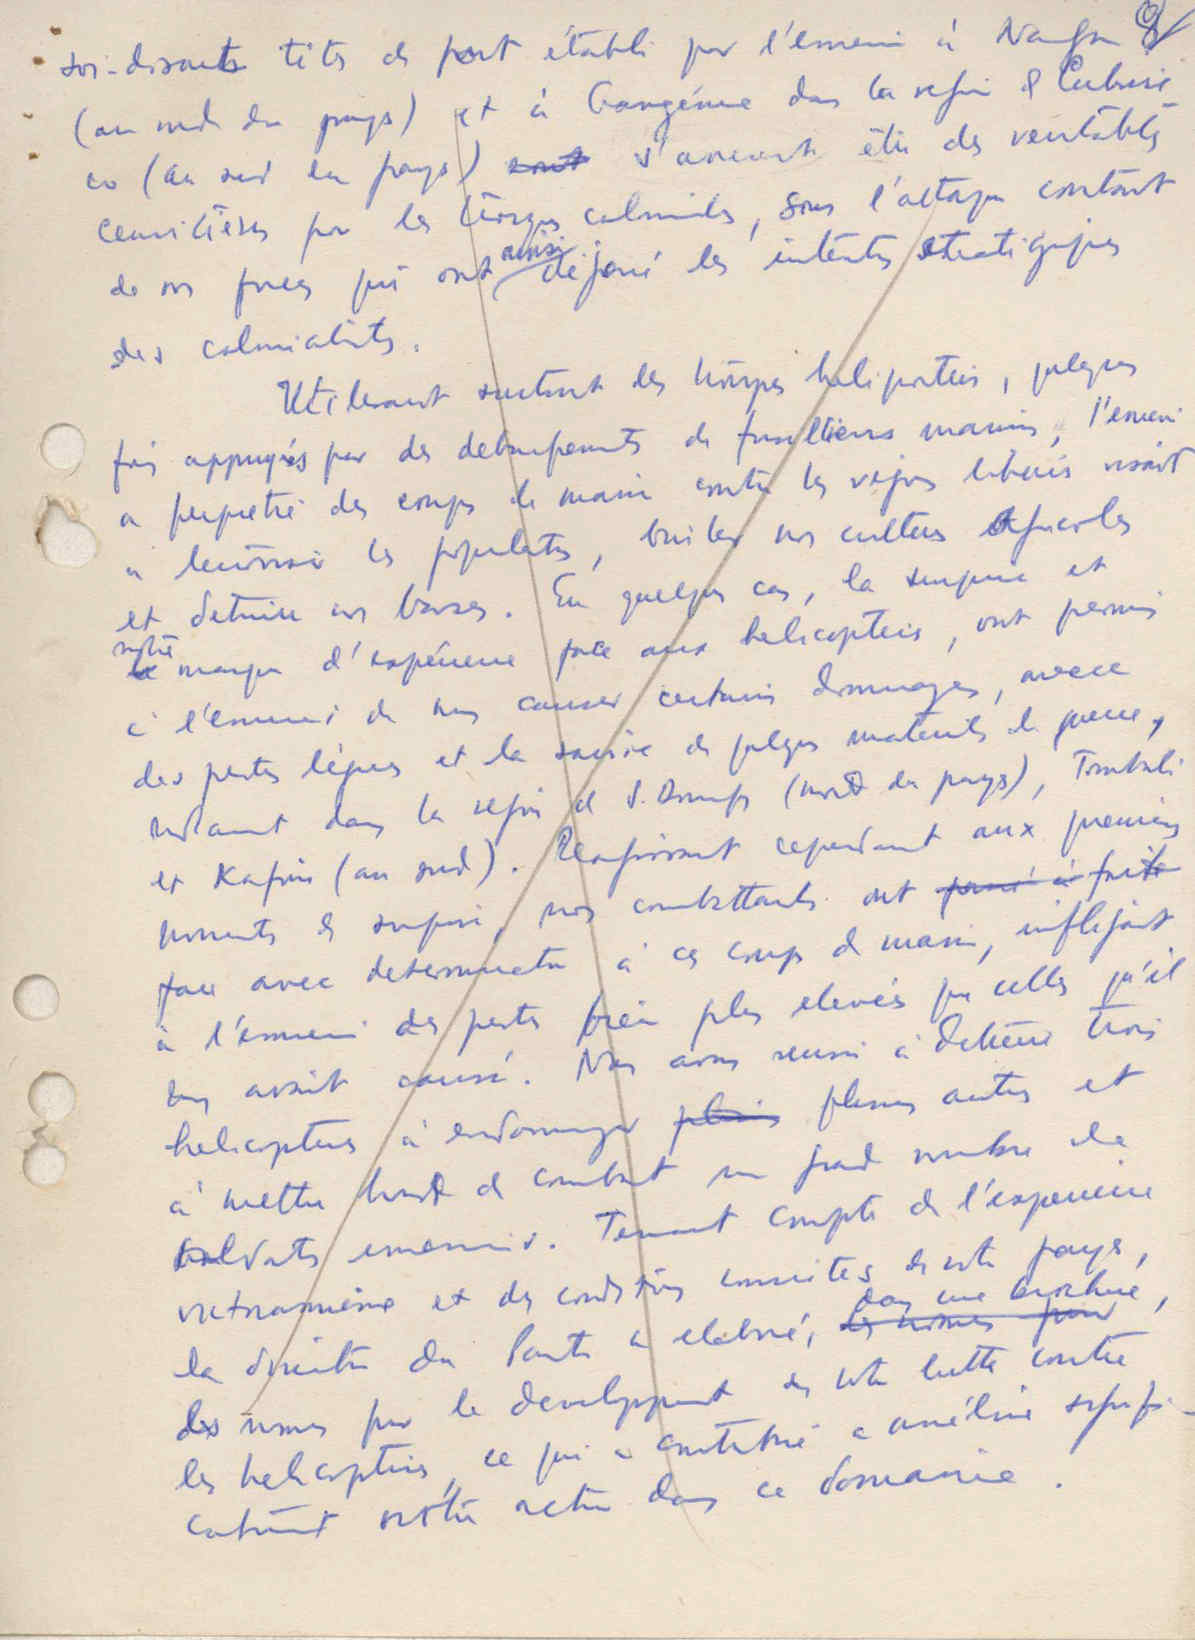 8
soi-disants têts de pont établi par l'ennemi à
(au nord du pays) et à Gangénne dans la région d Cubisé
co (au sud du pays) sont s'averent être des veritables
cemitières pour les troupes coloniales, sous l'attaque contant
de nos forces qui ont ainsi déjoué les intentes stratégiques
des colonialists.
Utilisant surtout des troupes heliportées, quelques
fois appuyés par des debarquements de fusilliers marins, l'ennemi
a perpetré des coups de main contre les régions liberés visant
à terroriser les populations, bruler nos cultures agricoles
et detruire nos bases. En quelques cas, la surprise et
notre manque d'expérience face aux helicopteres, ont permis
à l'ennemi de nous causer certains dommages, avec
des pertes légères et la saisie de quelques materiels de guerre,
notament dans la région de S. Domingos (nord du pays), Tombali
et Kafine (au sud). Reagissant cependant aux premiers
moments de surprise, nos combattants ont passé à faite
face avec determination à ces coups de main, infligeant
à l'ennemi des pertes bien plus elevés que celles qu'il
nous avait causé. Nous avons reussi à detruire trois
helicopteres à endommager plusieurs autres et
à mettre hors de combat un grand nombre de
soldats ennemis. Tenant compte de l'experience
vietnamienne et des conditions concretes de notre pays,
la direction du Parti a elaboré, les normes pour dans une brochure,
des normes pour le developpement de notre lutte contre
les helicopteres, ce qui a contribué a améliorer signifi-
cativement notre action dans ce domaine.